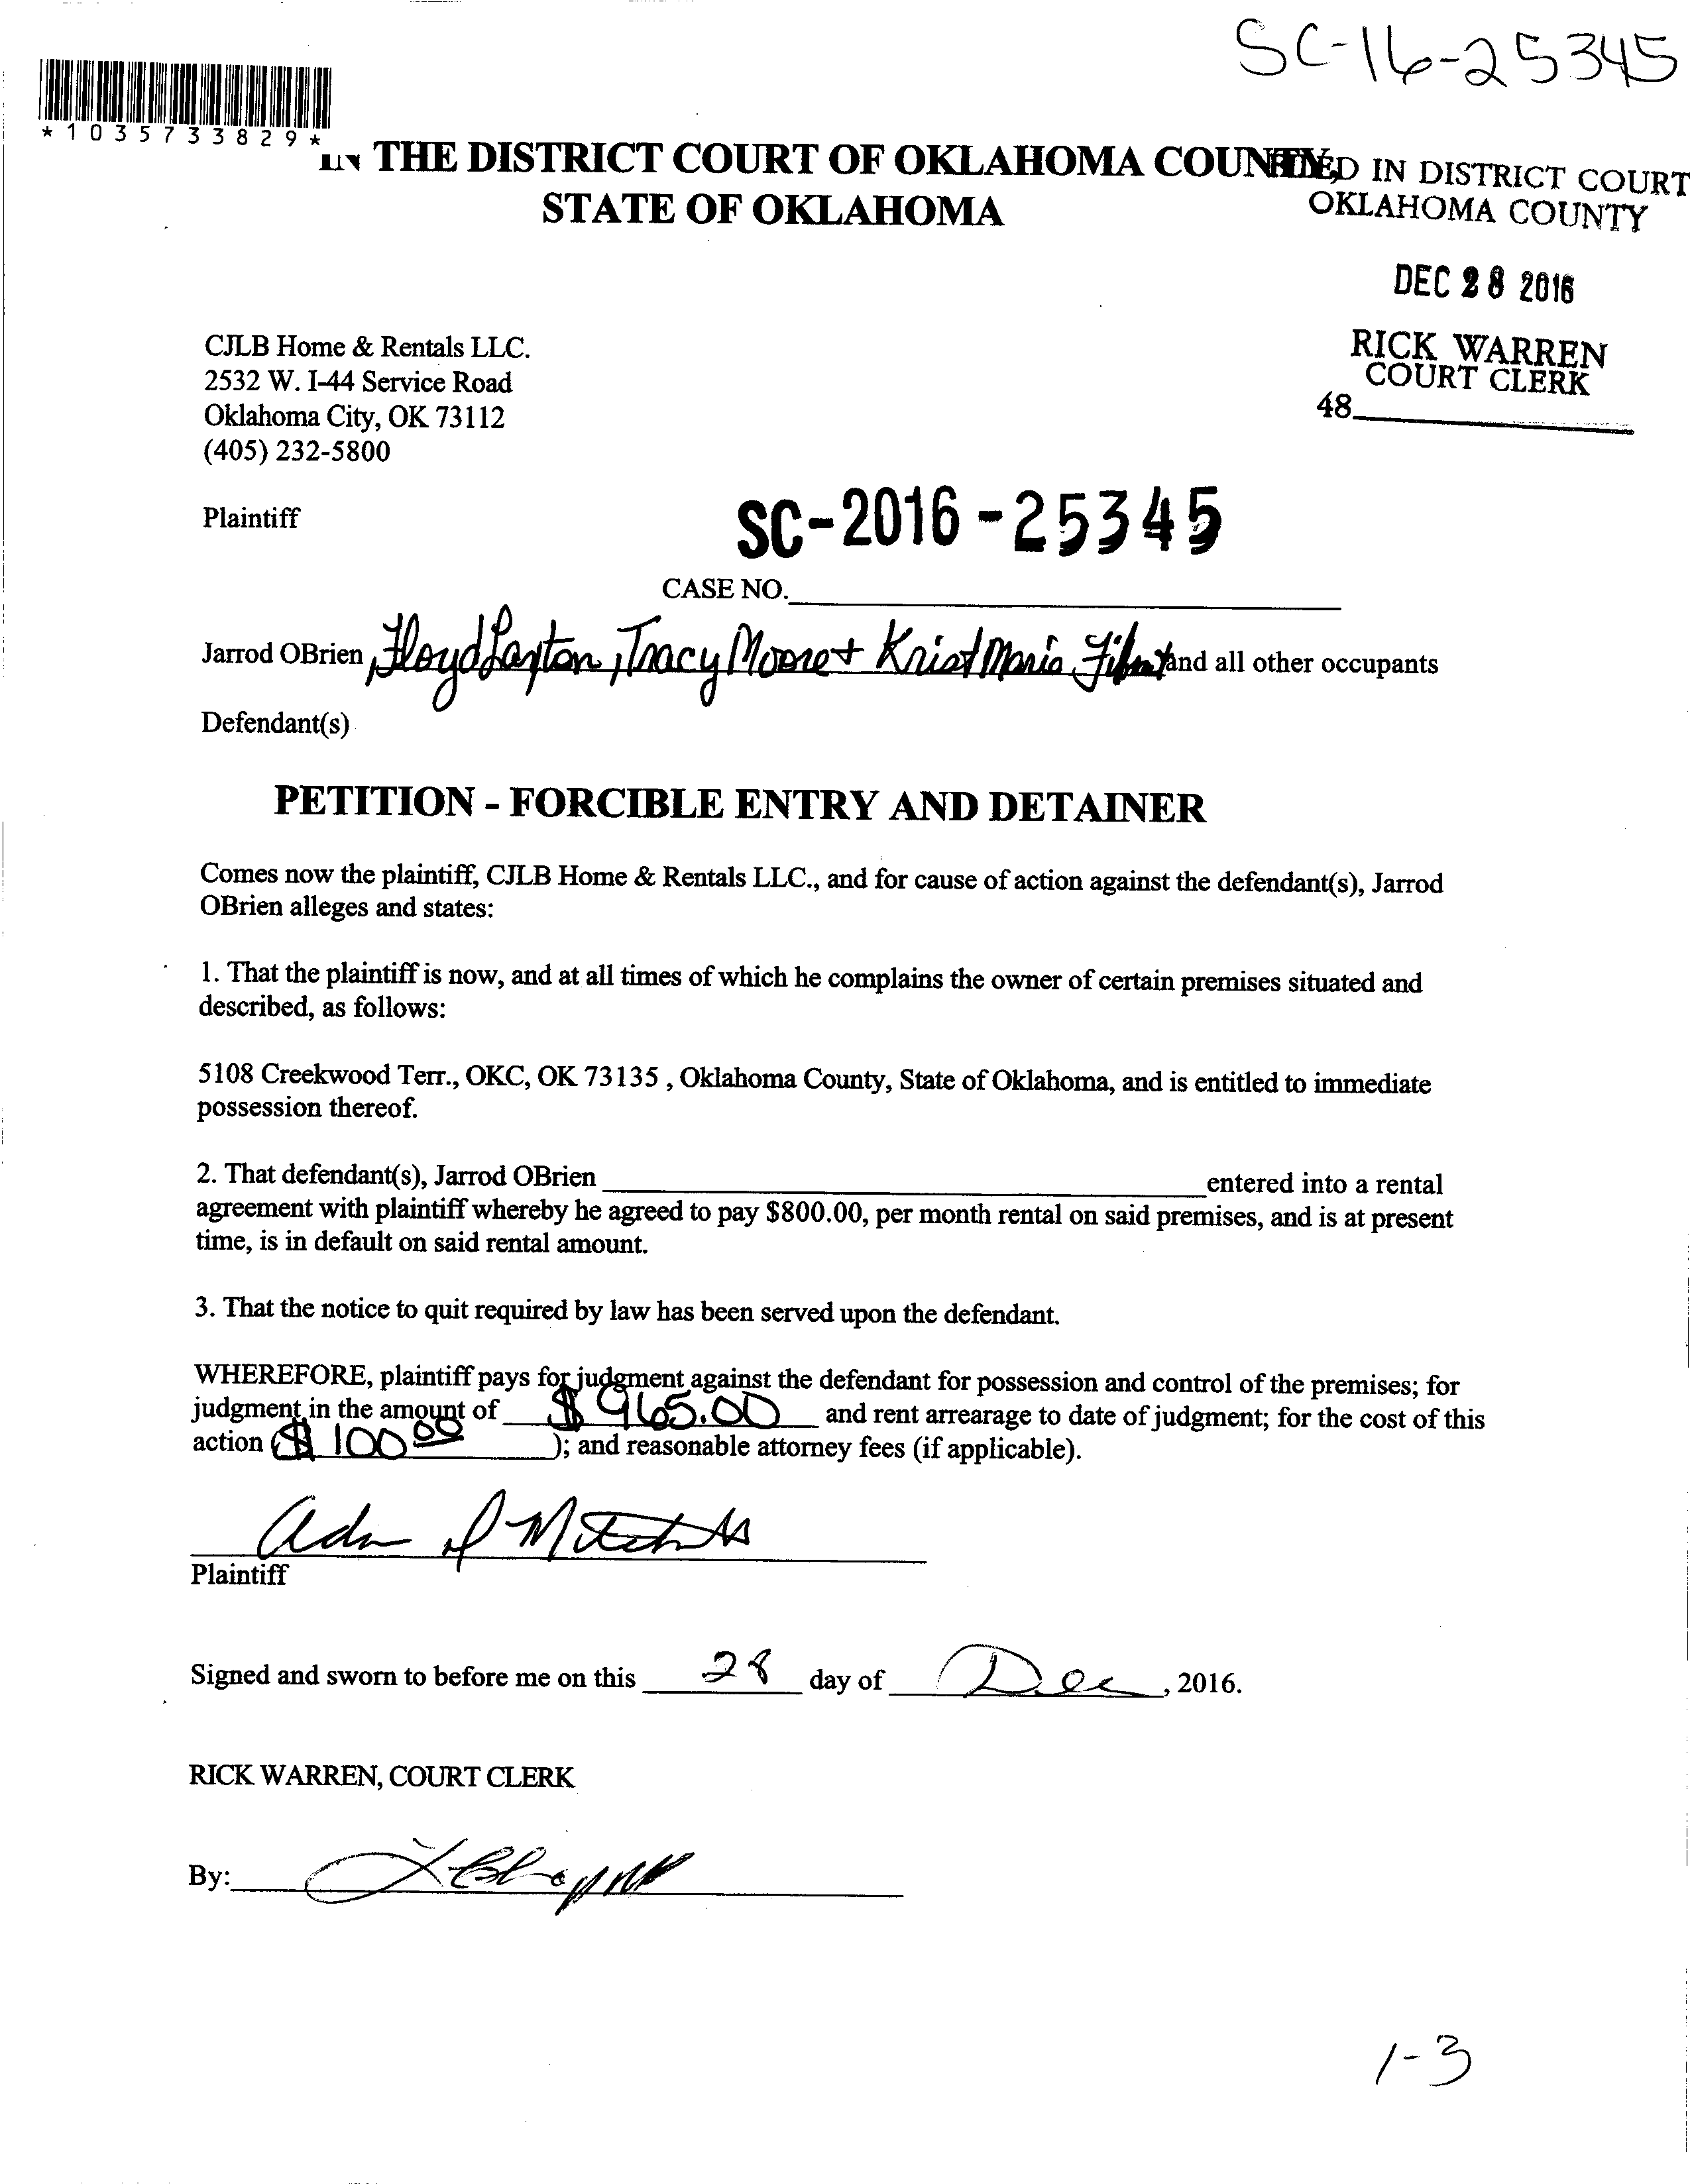 SC-16-25345
*1035733829*
IN THE DISTRICT COURT OF OKLAHOMA COUNTY,
STATE OF OKLAHOMA
FILED IN DISTRICT COURT
OKLAHOMA COUNTY
DEC 28 2016
RICK WARREN
COURT CLERK
48
CJLB Home & Rentals LLC.
2532 W. I-44 Service Road
Oklahoma City, OK 73112
(405) 232-5800
Plaintiff
SC-2016-25345
CASE NO.
Jarrod OBrien, Floyd Layton, Tracy Moore + Krist Maria and all other occupants
Defendant(s)
PETITION - FORCIBLE ENTRY AND DETAINER
Comes now the plaintiff, CJLB Home & Rentals LLC., and for cause of action against the defendant(s), Jarrod
OBrien alleges and states:
1. That the plaintiff is now, and at all times of which he complains the owner of certain premises situated and
described, as follows:
5108 Creekwood Terr., OKC, OK 73135 , Oklahoma County, State of Oklahoma, and is entitled to immediate
possession thereof.
2. That defendant(s), Jarrod OBrien entered into a rental
agreement with plaintiff whereby he agreed to pay $800.00, per month rental on said premises, and is at present
time, is in default on said rental amount.
3. That the notice to quit required by law has been served upon the defendant.
WHEREFORE, plaintiff pays for judgment against the defendant for possession and control of the premises; for
judgment in the amount of $965.00 and rent arrearage to date of judgment; for the cost of this
action ($100 00); and reasonable attorney fees (if applicable).
Plaintiff
Signed and sworn to before me on this 28 day of Dec, 2016.
RICK WARREN, COURT CLERK
By:
1-3